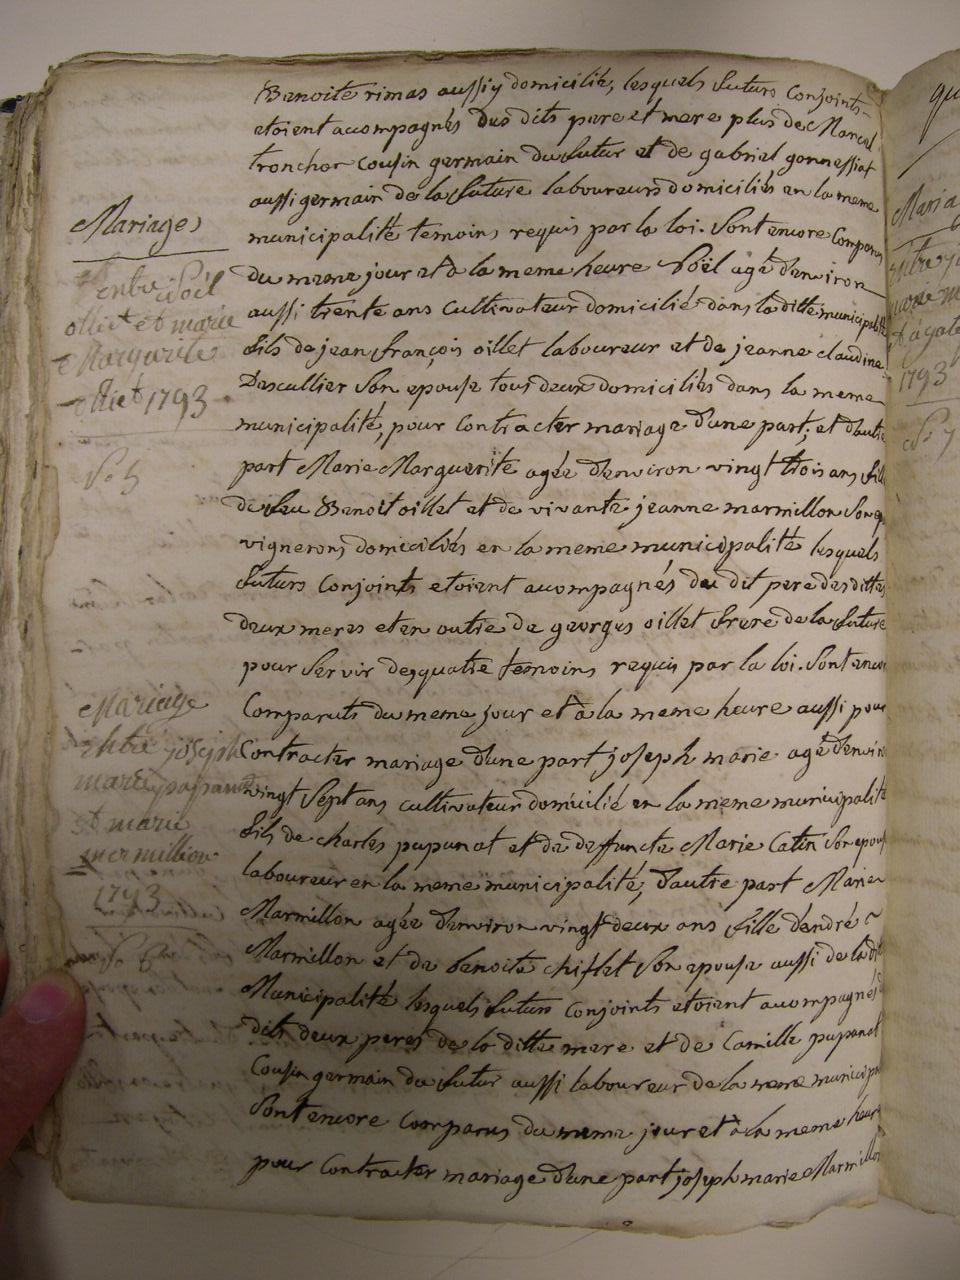 Benoite rimas aussy domiciliés, lesquels futurs Conjoints
etoient acompagnés des dits pere et mere plus de Marcel
tronchor Cousin germain du futur et de gabriel gonnessiat
aussi germain de la future laboureurs domiciliés en la meme
municipalité temoins requis par la loi. Sont encore Comparus
du meme jour et à la meme heure Noël agé d'environ
aussi trente ans Cultivateur domicilié dans la ditte municipalité
fils de jean françois oillet laboureur et de jeanne claudine
Descullier Son epouse tous deux domiciliés dans la meme
municipalité, pour Contracter mariage d'une part; et d'autre
part Marie Marguerite agée d'environ vingt trois ans fille
de feu Benoit oillet et de vivante jeanne marmillon Son
vignerons domiciliés en la meme municipalité lesquels
futurs Conjoints etoient acompagnés du dit pere des dittes
deux meres et en outre de georges oillet frere de la future
pour Servir de quatre temoins requis par la loi. Sont encor
Comparuts du meme jour et à la meme heure aussi pour
Contracter mariage d'une part joseph marie agé d'environ
vingt Sept ans cultivateur domicilié en la meme municipalité
fils de charles papunat et de deffuncte Marie Catin Son epouse
laboureur en la meme municipalité, d'autre part Marie
Marmillon agée d'environ vingt deux ans fille d'andré
Marmillon et de benoite chiflet Son epouse aussi de la dit
Municipalité lesquels futurs Conjoints etoient acompagnés
dits deux peres de la ditte mere et de Camille papunat
Cousin germain du futur aussi laboureur de la meme municip
Sont encore Comparus du meme jour et à la meme heure
pour Contracter mariage d'une part joseph marie Marmillon
Mariages
entre Noël
oillet et marie
Marguerite
oillet 1793
Mariage
entre joseph
marie papunat
et marie
mermillion
1793
Maria
entre
1793